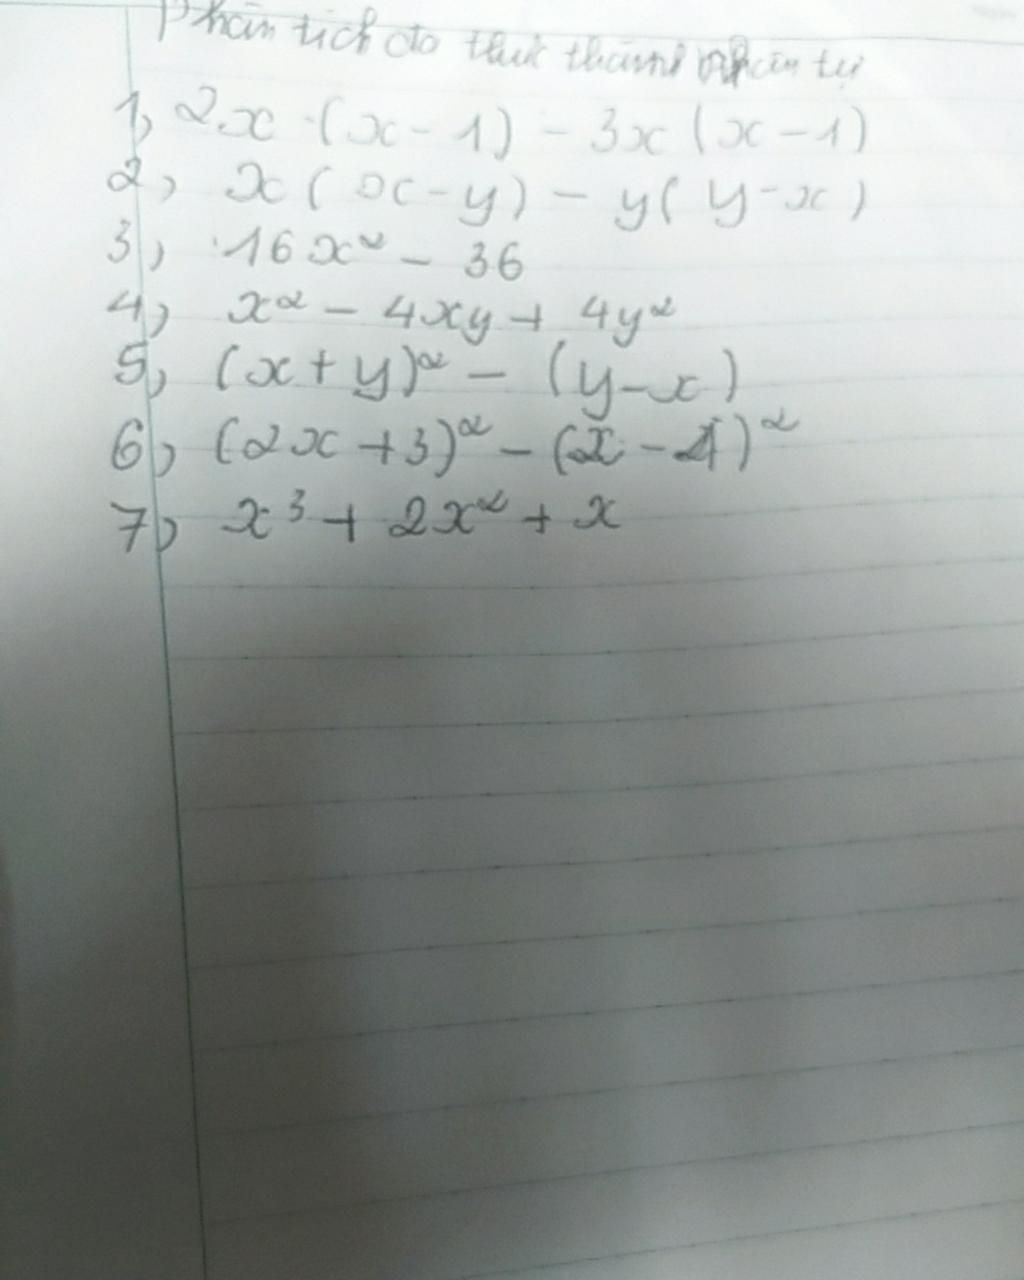 Phân tích đa thức thành nhân tử
1, 2x (x - 1) - 3x (x - 1)
2, x ( x - y ) - y ( y - x )
3, 16x² - 36
4, x² - 4xy + 4y²
5, (x + y)² - (y - x)
7, x³ + 2x² + x